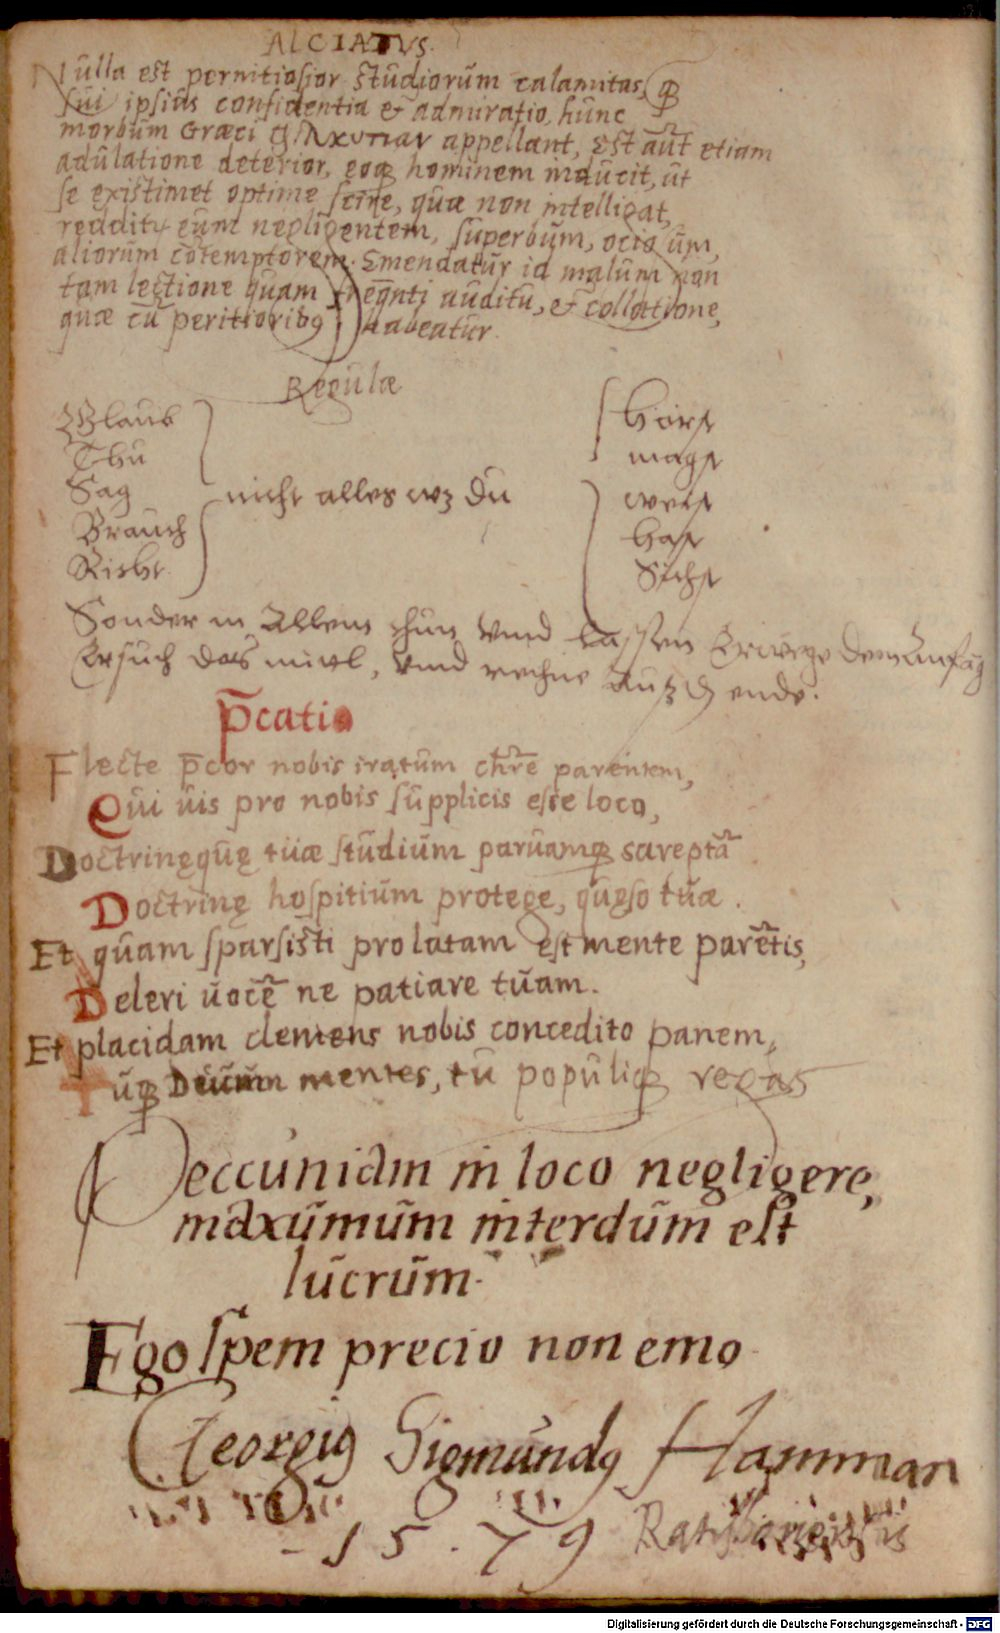 ALCIATVS.
Nulla est pernitiosior studiorum calamitas, qȝ
sui ipsius confidentia et admiratio, hunc
morbum Græci φιλαυτίαν appellant, Est aut̄ etiam
adulatione deterior, eoqȝ hominem inducit, ut
se existimet optime scire, quæ non intelligat,
reddit eum negligentem, superbum, ociosum,
aliorum cōtemptorem. Emendatur id malum non
tam lectione quam freqūnti auditu, et collatione,
quæ cū peritioribꝯ habeatur.
Regulæ
Glaub hörst
Thu magst
Sag nicht alles wz du weist
Brauch hast
Richt Sichst
Sonder in Allem thun Vnd lassen Erwege den Anfāg
Ersuch das mitl, Vnd rechne Auß dz ende.
P̄catio
Flecte p̄cor nobis iratum chr̄e parentem,
Qui uis pro nobis supplicis esse loco,
Doctrinęquę tuæ studium paruamqȝ sareptā
Doctrinę hospitium protege, quęso tuæ.
Et quam sparsisti prolatam est mente parētis,
Deleri uocē ne patiare tuam.
Et placidam clemens nobis concedito panem,
uqȝ Deum mentes, tu populiqȝ regas
Peccuniam in loco negligere,
maxumum interdum est
lucrum.
Ego spem precio non emo
Georgiꝯ Sigmundꝯ Hamman
Ratisbonensis
- 15.79